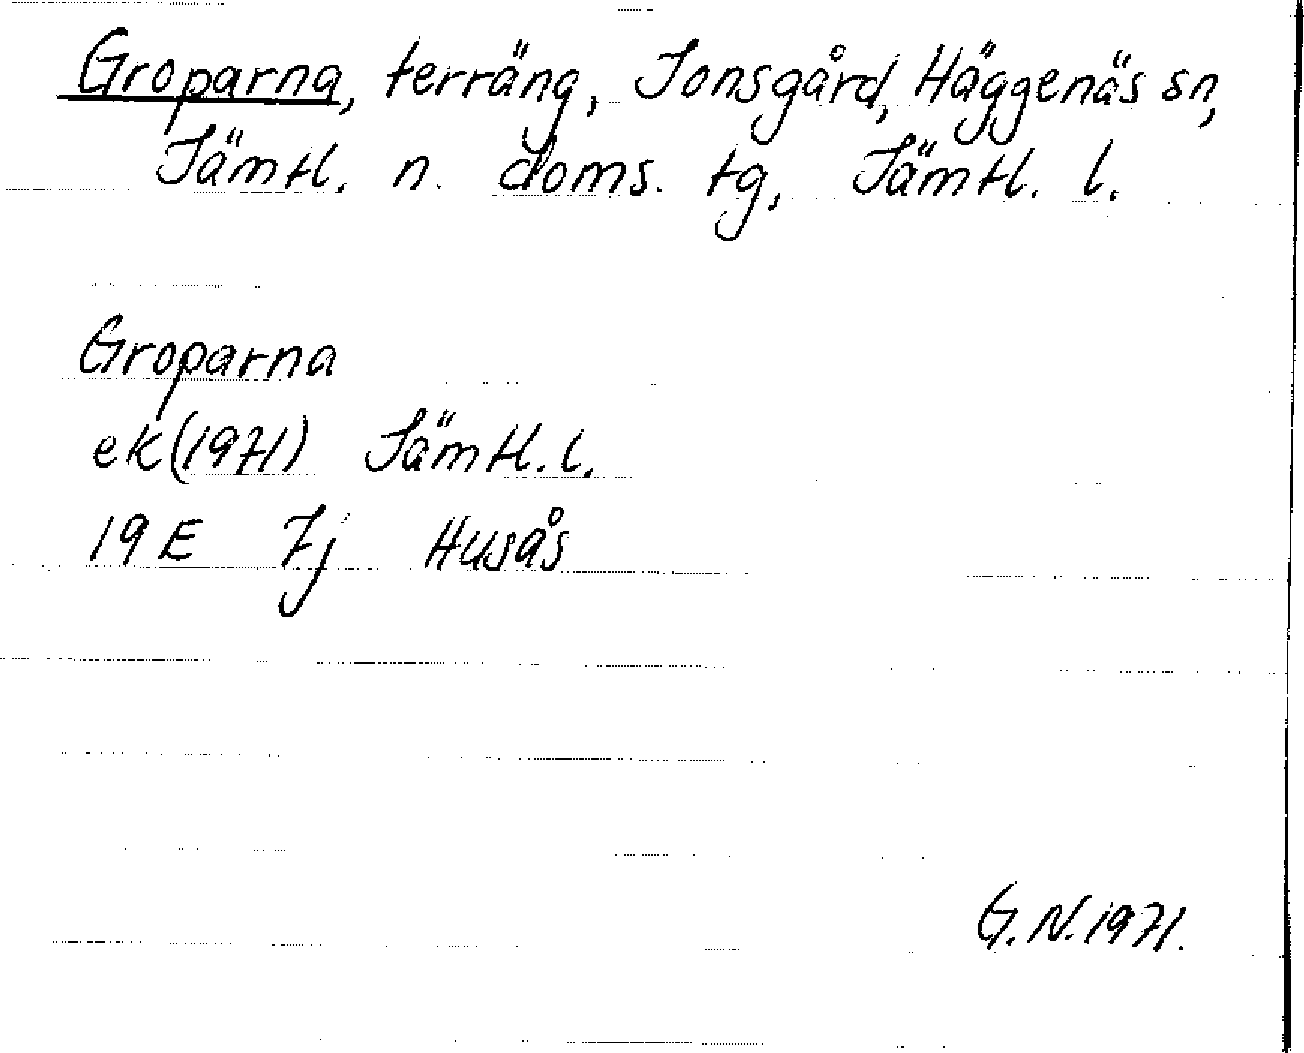 Groparna, terräng, Jonsgård, Häggenäs sn,
Jämtl. n. doms. tg, Jämtl. l.
Groparna
ek (1971) Jämtl. l.
19 E 7j Husås
G.N. 1971.